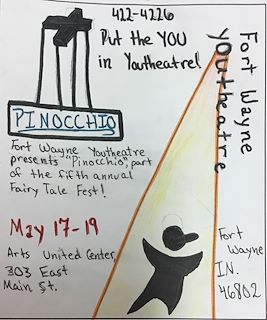 422-4226
Put the YOU
in Youtheatre!
Fort Wayne
yOUtheatre
PINOCCHIO
Fort Wayne Youtheatre
presents "Pinocchio", part
of the fifth annual
Fairy Tale Fest!
May 17-19
Arts United Center
303 East
Main St.
Fort
Wayne
IN.
46802